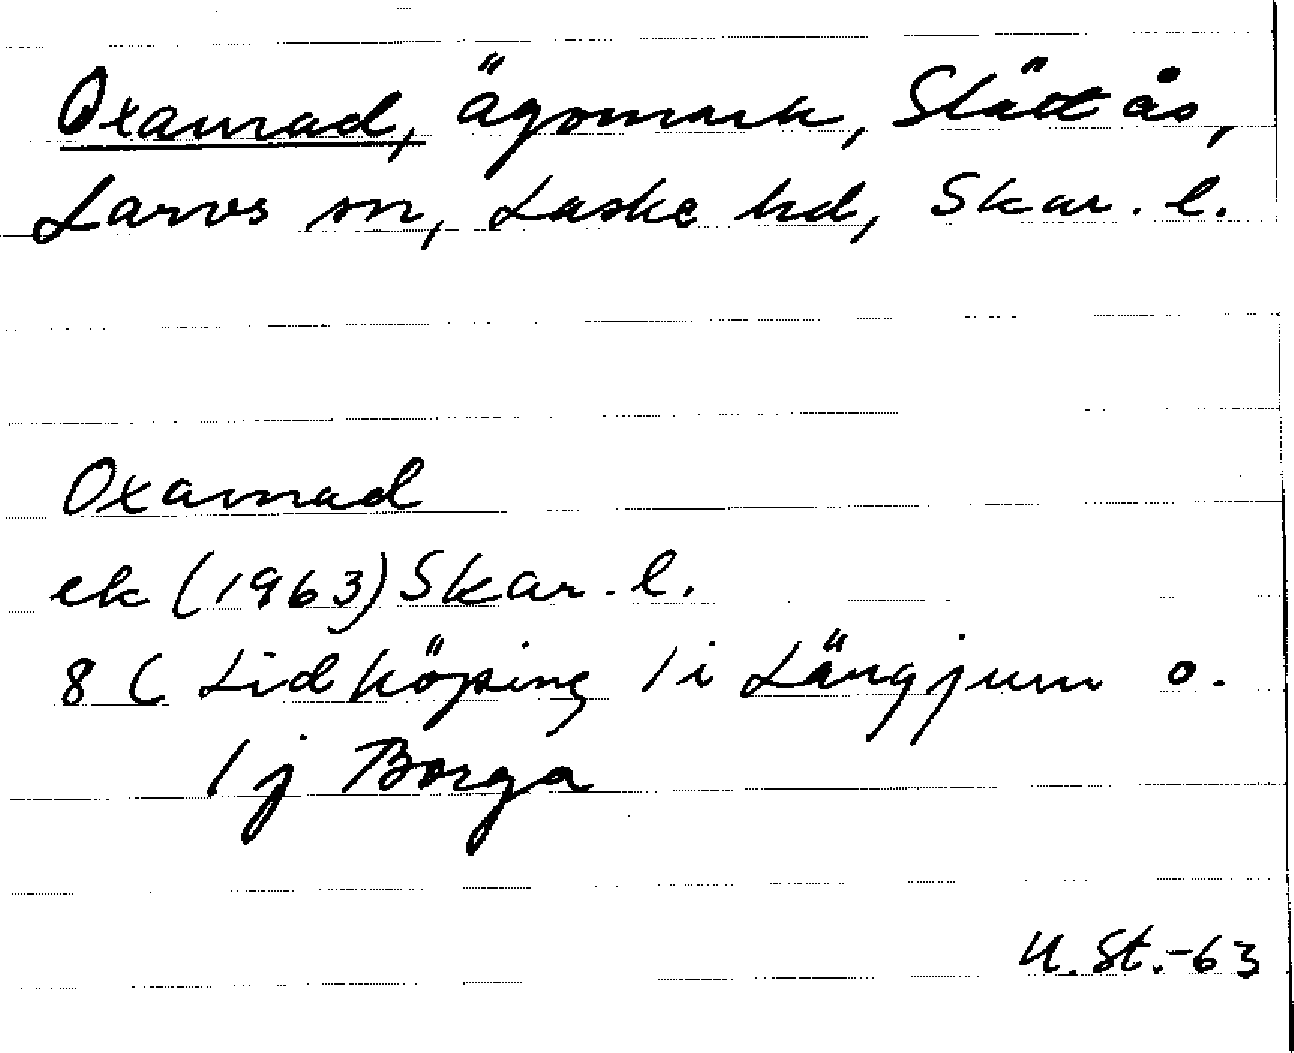 Oxavrad, ägomark, Slättås,
Larvs sn, Laske hd, Skar. l.
Oxavrad
ek (1963) Skar. l.
8 C Lidköping 1 i Längjum o.
1 j Borga
U. St.-63